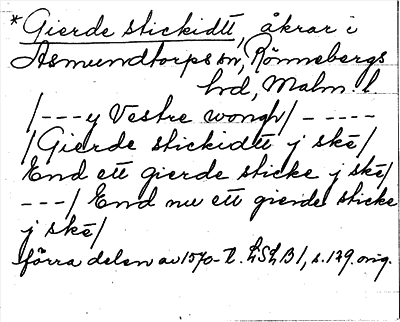 *Gierde stickidtt, åkrar i
Asmundtorps sn, Rönnebergs
hd, Malm. l
/---y Vestre wongh/ - ----
/Gierde stickidtt j skē/
End ett gierde sticke j skē/
---/ End nu ett gierde sticke
j skē/
förra delen av 1570-t. LSLB1, s. 179. orig.